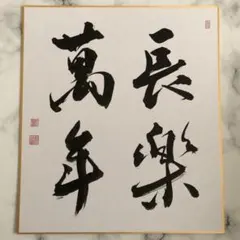 長樂
萬年